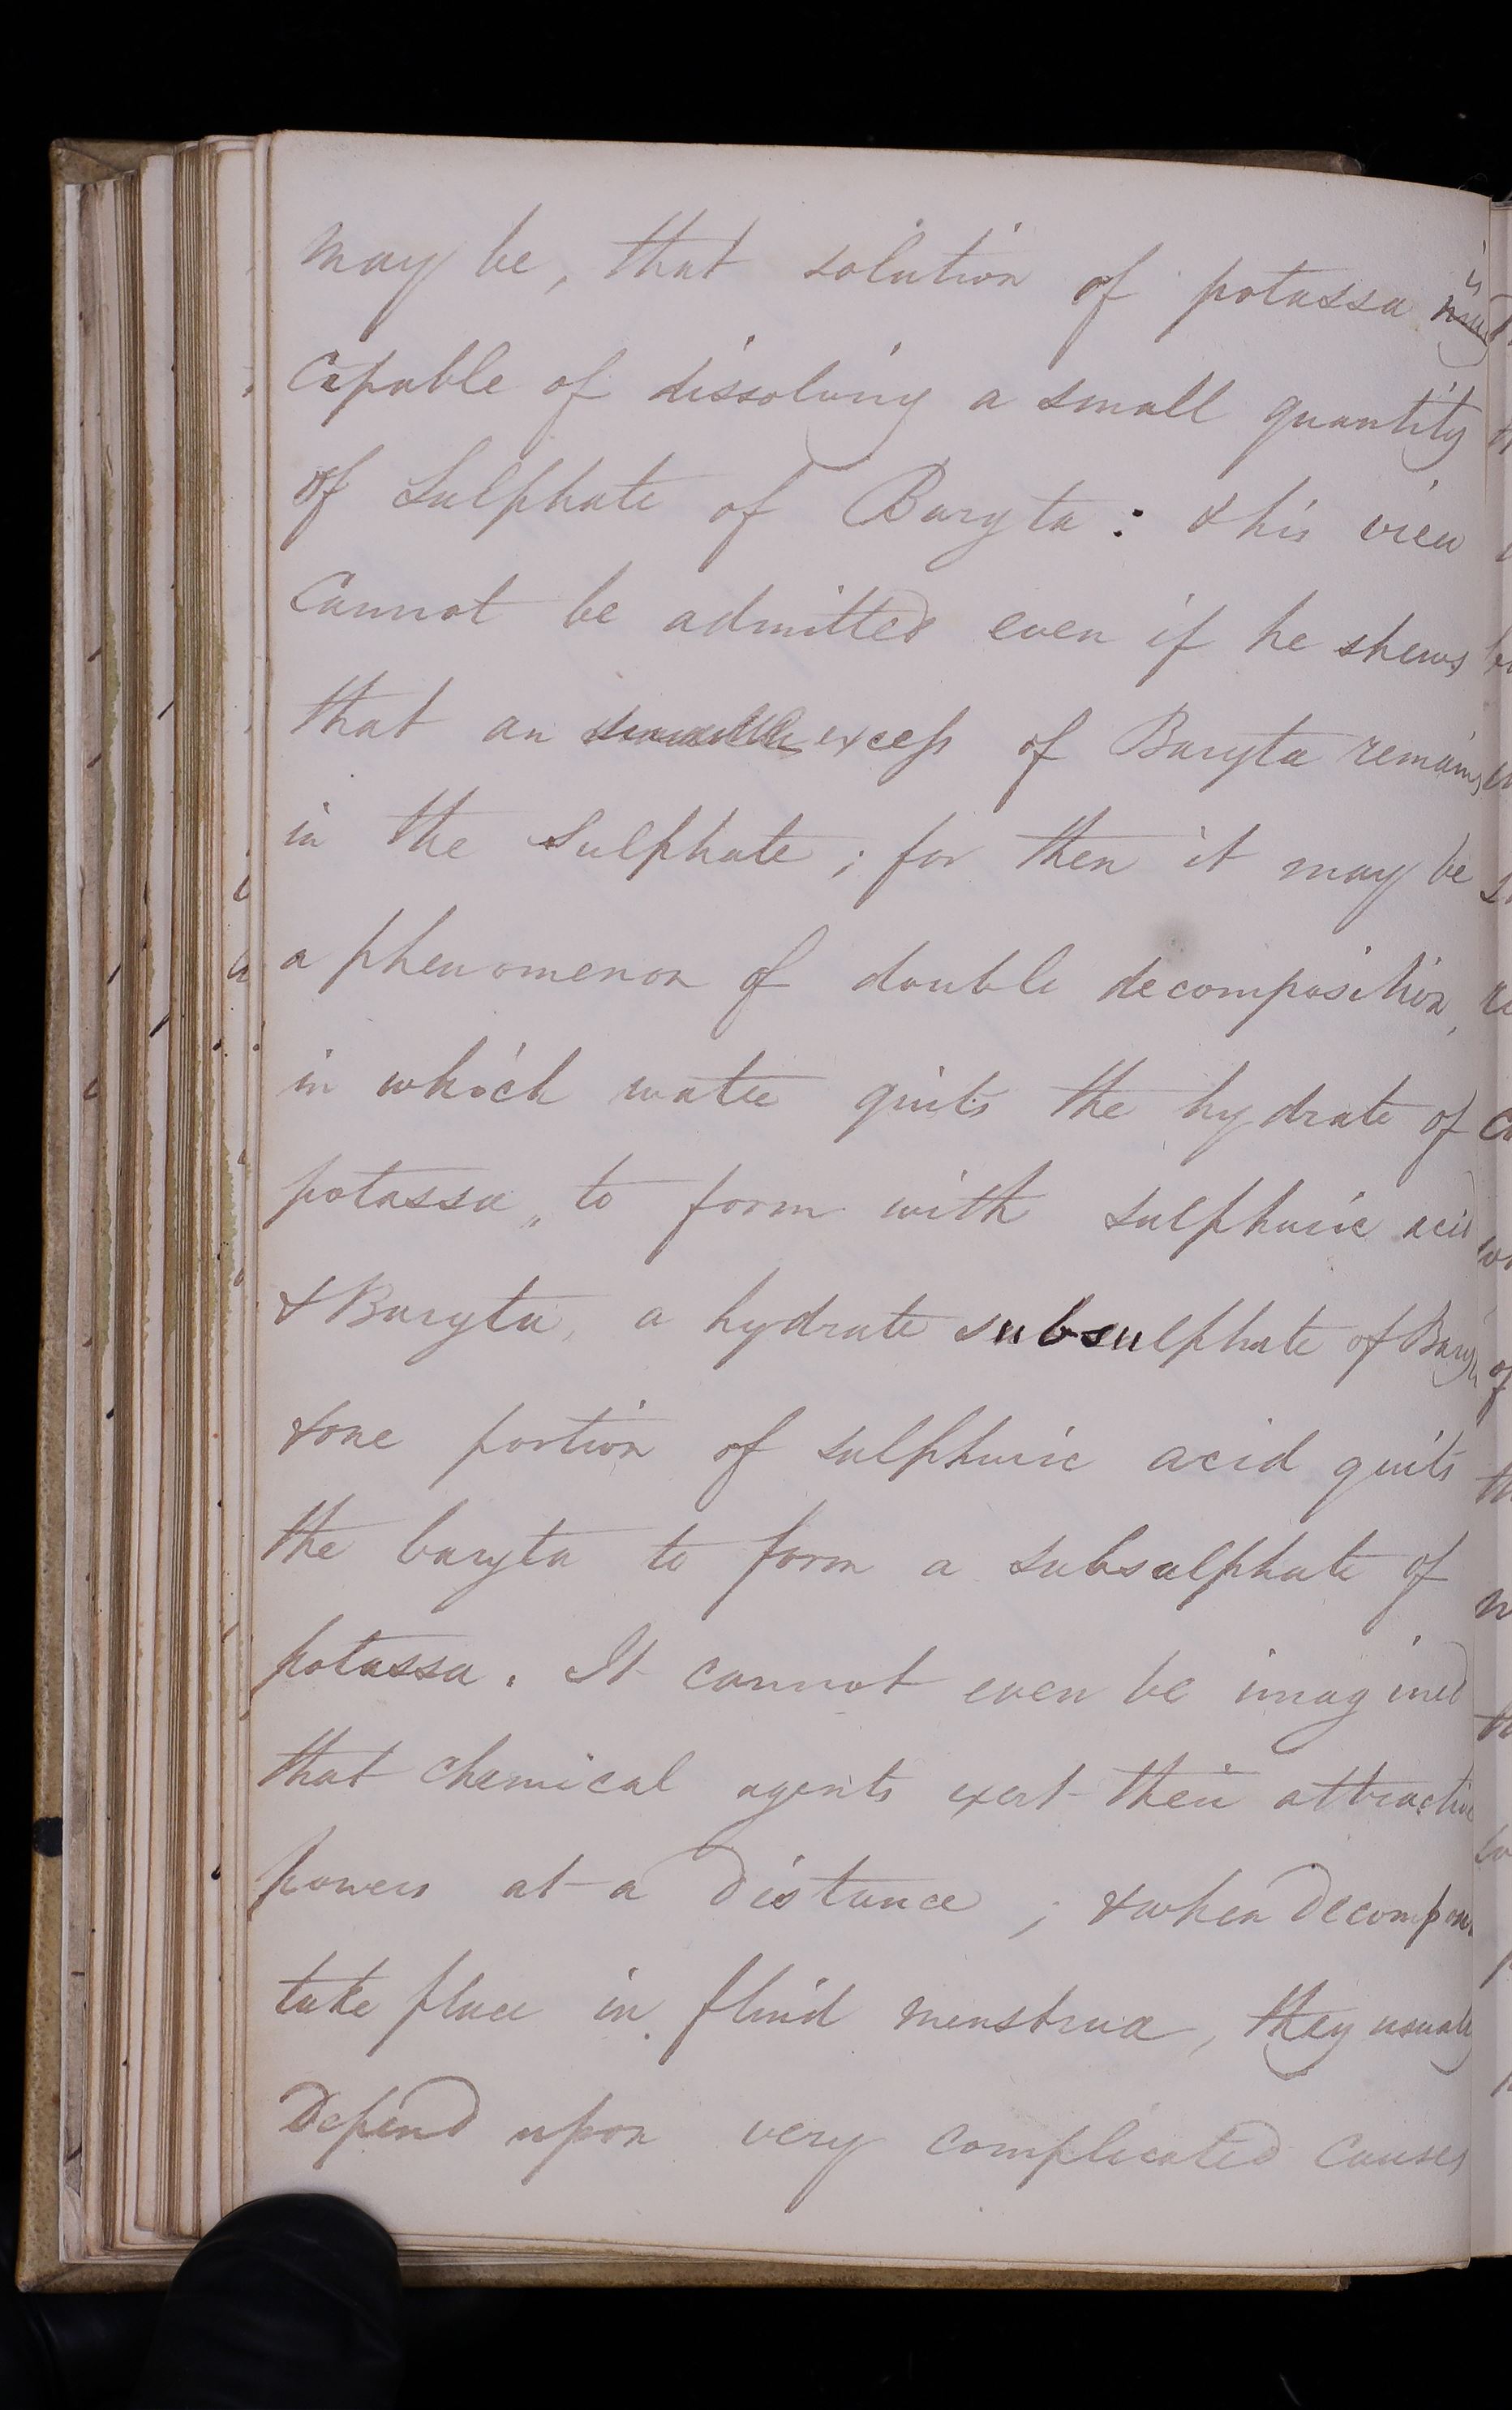 may be, that solution of potassa is
Capable of dissolving a small quantity
of Sulphate of Baryta: & his view
Cannot be admitted even if he shews
that an excess of Baryta remains
in the Sulphate; for then it may be
a phenomenon of double decomposition,
in which water quits the hydrate of
potassa, to form with sulphuric acid
& Baryta, a hydrate subsulphate of
& one portion of sulphuric acid quits
the baryta to form a subsulphate of
potassa. It cannot even be imagined
that chemical agents exert their attractive
powers at a distance; & when
take place in fluid menstrua, they usually
Depend upon very complicated causes